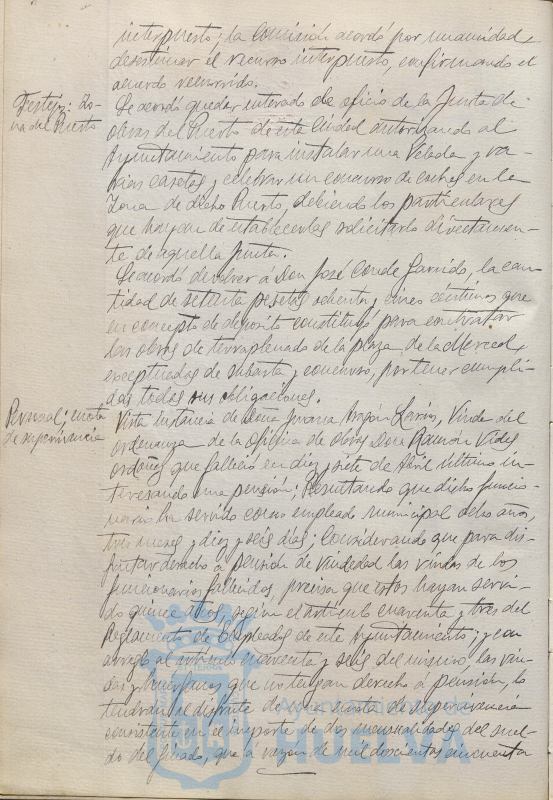 interpuesto; la comisión acordó por unanimidad,
desestimar el recurso interpuesto, confirmando el
acuerdo recurrido.
Festejos: Zo-
na del Puerto
Se acordó quedar enterado de oficio de la Junta de
obras del Puerto de esta Ciudad autorizando al
Ayuntamiento para instalar una Velada y va-
rias casetas y celebrar un concurso de coches en la
Zona de dicho Puerto, debiendo los particulares
que hayan de establecerlas solicitarlo directamen-
te de aquella Junta.
Se acordó devolver á Don José Conde Garrido, la can-
tidad de setenta pesetas ochenta y cinco céntimos que
en concepto de depósito constituyó para contratar
las obras de terraplenado de la plaza de la Merced,
exceptuadas de subasta y concurso, por tener cumpli-
das todas sus obligaciones.
Personal; cuota
de supervivencia
Vista instancia de Doña Juana Aragón Larios, Viuda del
ordenanza de la Oficina de Obras Don Ramón Vides
Ordoñez que falleció en diez y siete de Abril último in-
teresando una pensión; Resultando que dicho funcio-
nario ha servido como empleado municipal ocho años,
tres meses y diez y seis días; Considerando que para dis-
frutar derecho a pensión de viudedad las viudas de los
funcionarios fallecidos, precisa que estos hayan servi-
do quince años, según el artículo cuarenta y tres del
Reglamento de Empleados de este Ayuntamiento; y con
arreglo al artículo cuarenta y seis del mismo, las viu-
das y huérfanos que no tengan derecho a pensión, lo
tendrán al disfrute de una cuota de supervivencia
consistente en el importe de dos mensualidades del suel-
do del finado, que á razón de mil doscientas cincuenta
AYUNTAMIENTO DE
HUELVA